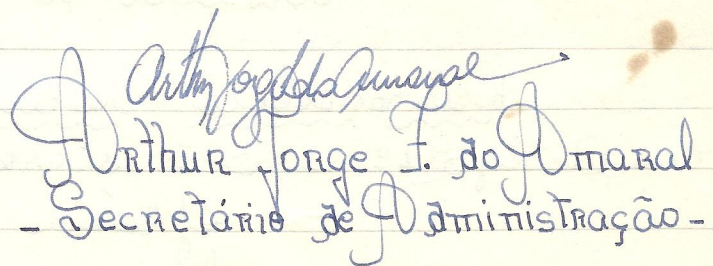 Arthur Jorge F. do Amaral
Arthur Jorge F. do Amaral
- Secretário de Administração -